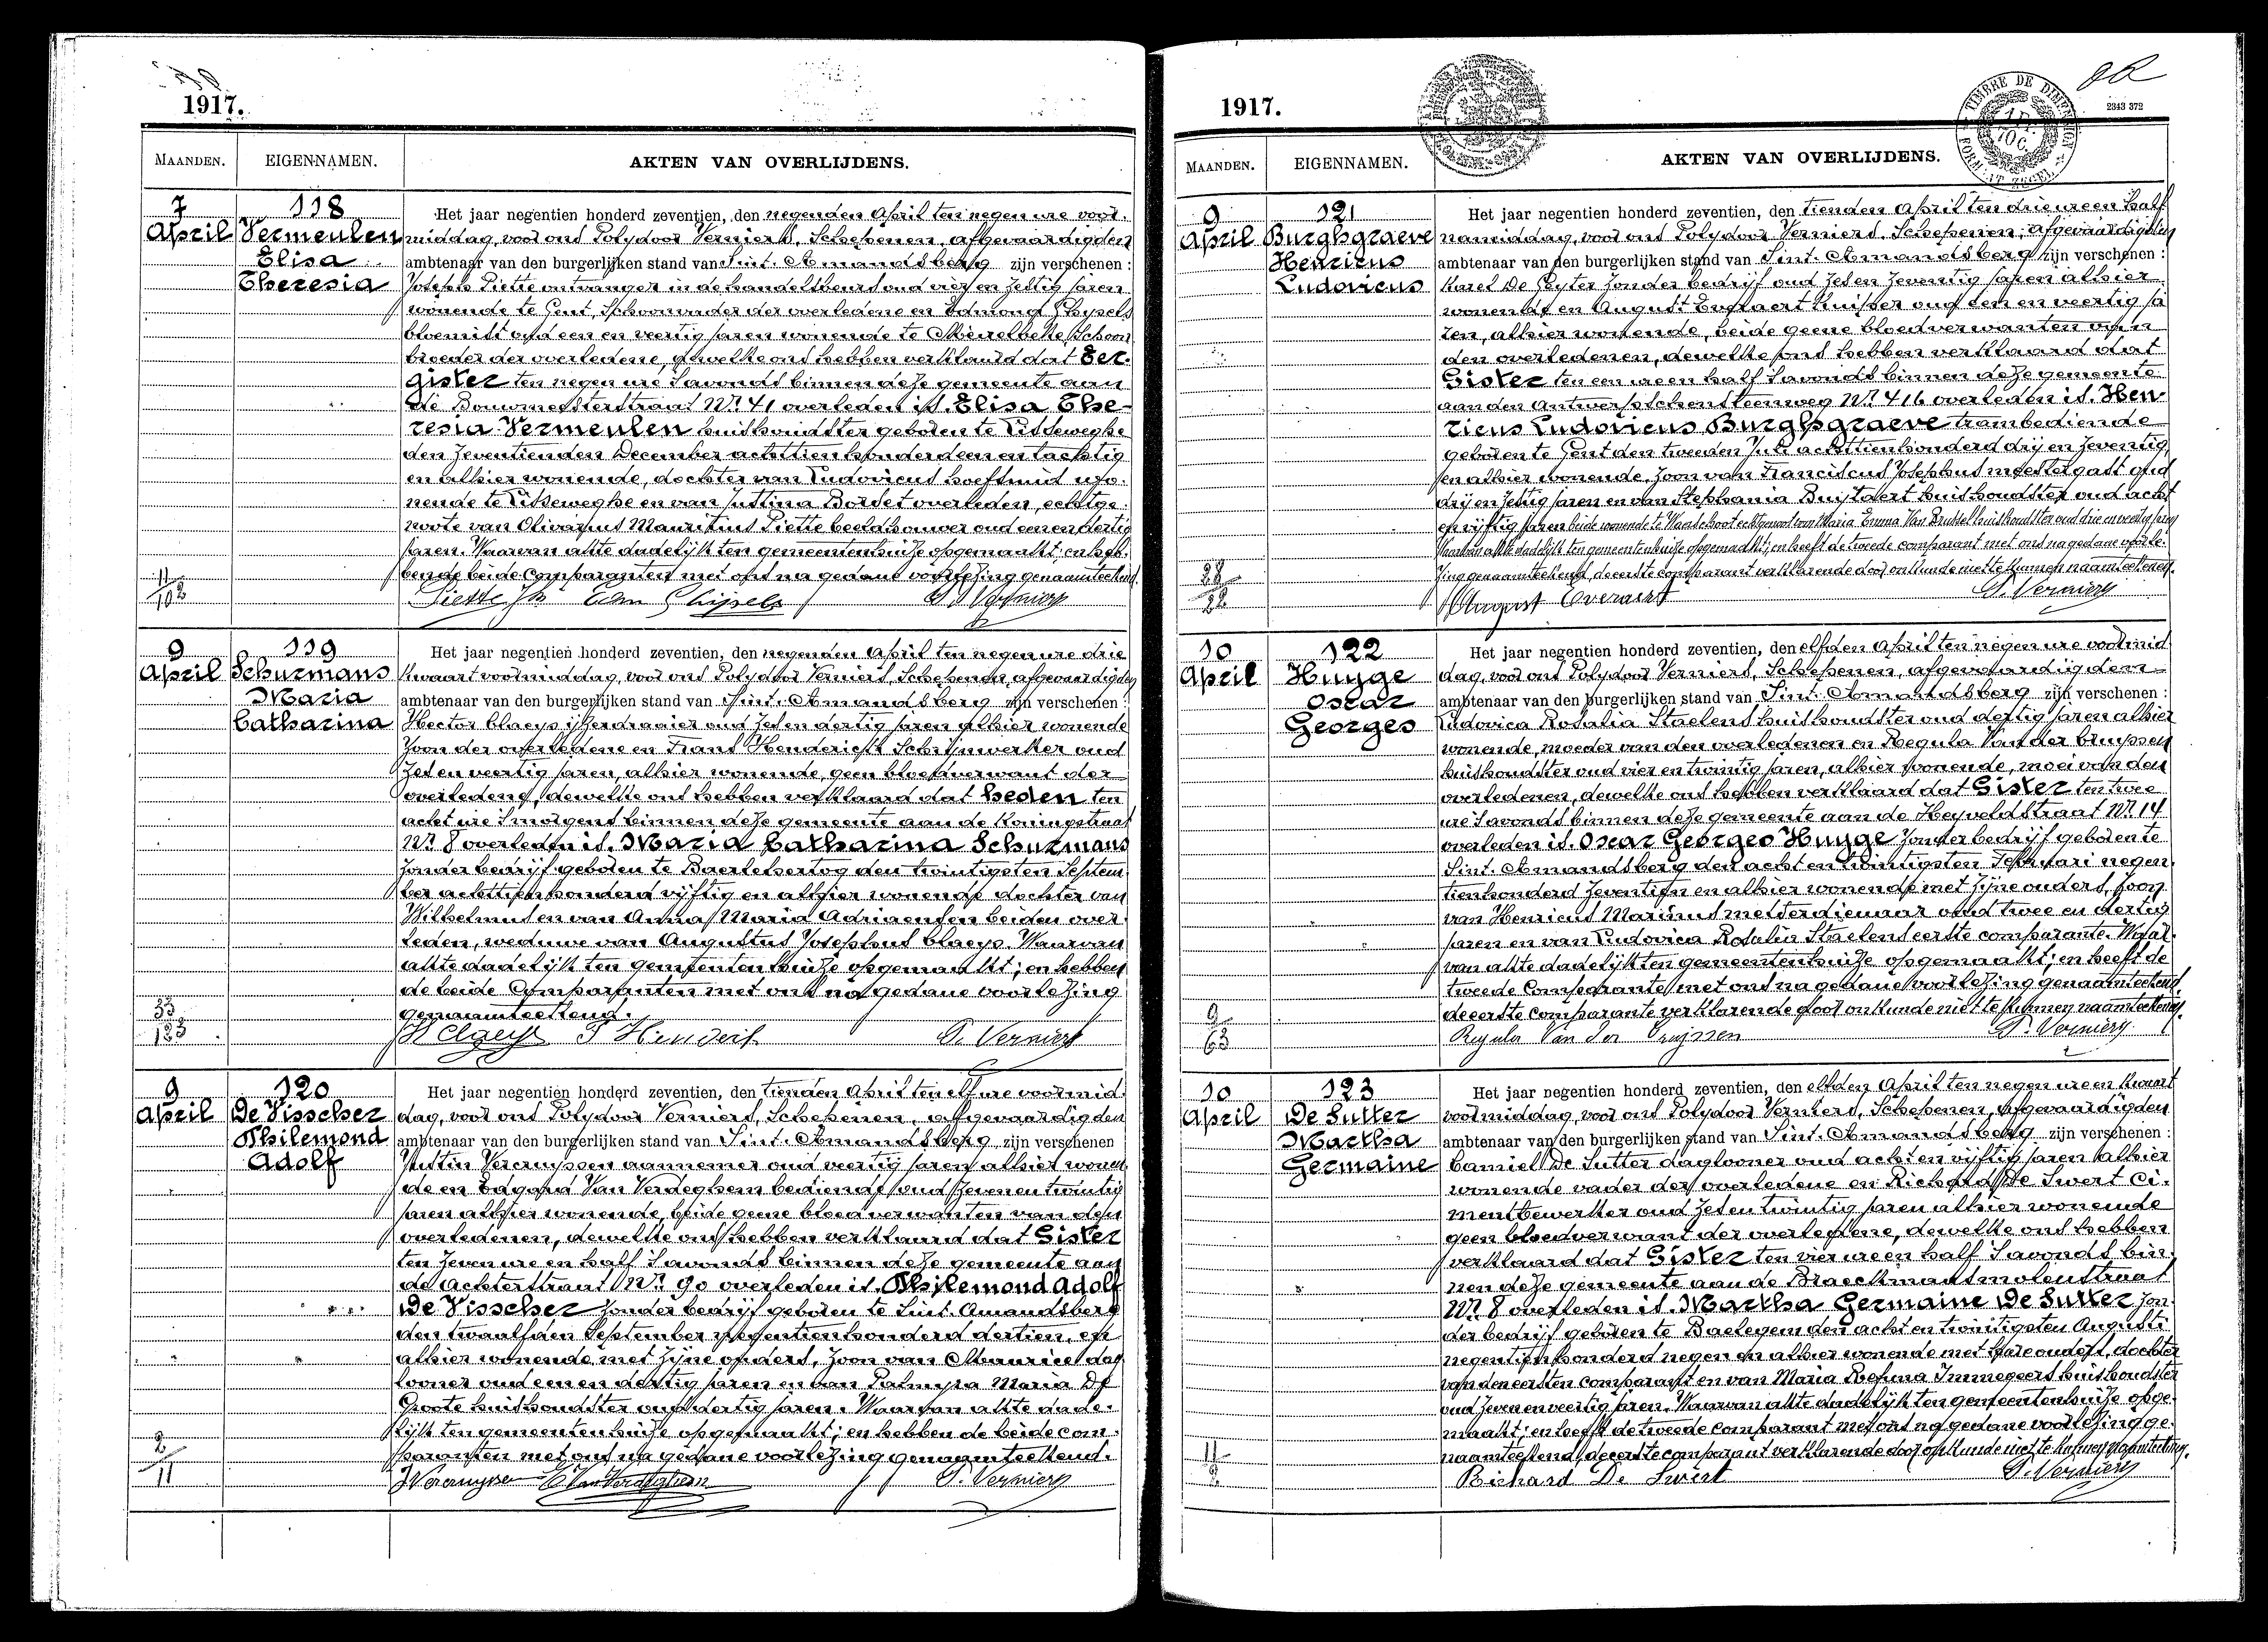 1917.
MAANDEN. EIGENNAMEN. AKTEN VAN OVERLIJDENS.
7 118 Het jaar negentien honderd zeventien, den negenden April ten negen ure voor-
April Vermeulen middag, voor ons Polydoor Verniers, Schepenen, afgevaardigden
Elisa ambtenaar van den burgerlijken stand van Sint-Amandsberg zijn verschenen :
Theresia Joseph Piette ontvanger in de handelsbeurs oud vier en zestig jaren
wonende te Gent, Schoonvader der overledene en Edmond Ghysels
bloemist oud een en veertig jaren wonende te Meirelbeke Schoon
broeder der overledene, dewelke ons hebben verklaard dat Eer-
gister ten negen ure s'avonds binnen deze gemeente aan
de Bouwmeesterstraat Nr. 41 overleden is. Elisa The-
resia Vermeulen huishoudster geboren te Lisseweghe
den zeventienden December achttien honderd een en tachtig
en alhier wonende, dochter van Ludovicus hoefsmid wo-
nende te Lisseweghe en van Justina Borset overleden, echtge-
noote van Olivarius Mauritius Piette beeldhouwer oud een en dertig
jaren. Waarvan akte dadelijk ten gemeentenhuize opgemaakt; en heb-
bende beide Comparanten met ons na gedane voorlezing genaamteekend.
11/102 Piette Jh Edm Ghijsels P. Verniers
9 119 Het jaar negentien honderd zeventien, den negenden April ten negen ure drie
April Schurmans kwaart voormiddag, voor ons Polydoor Verniers, Schepenen, afgevaardigden
Maria ambtenaar van den burgerlijken stand van Sint-Amandsberg zijn verschenen :
Catharina Hector Claeys ijzerdraaier oud zes en dertig jaren alhier wonende
Zoon der overledene en Frans Henderick Schrijnwerker oud
zes en veertig jaren, alhier wonende, geen bloedverwant der
overledene, dewelke ons hebben verklaard dat heden ten
acht ure s'morgens binnen deze gemeente aan de Koningstraat
Nr. 8 overleden is. Maria Catharina Schurmans
zonder bedrijf geboren te Baerlehertog den twintigsten Septem
ber achttienhonderd vijftig en alhier wonende dochter van
Wilhelmus en van Anna Maria Adriaensen beiden over-
leden, weduwe van Augustus Josephus Claeys. Waarvan
akte dadelijk ten gemeentenhuize opgemaakt; en hebben
de beide Comparanten met ons na gedane voorlezing
genaamteekend.
33/133 H Claeys F Henderick P. Verniers
9 120 Het jaar negentien honderd zeventien, den tienden April ten elf ure voormid-
April De Visscher dag, voor ons Polydoor Verniers, Schepenen, afgevaardigden
Philemond ambtenaar van den burgerlijken stand van Sint-Amandsberg zijn verschenen
Adolf Justin Vercruyssen aannemer oud veertig jaren alhier wonen
de en Edgard Van Verdeghem bediende oud zeven en twintig
jaren alhier wonende, beide geene bloedverwanten van den
overledenen, dewelke ons hebben verklaard dat Gister
ten zeven ure en half s'avonds binnen deze gemeente aan
de Achterstraat Nr. 90 overleden is. Philemond Adolf
De Visscher zonder bedrijf geboren te Sint-Amandsberg
den twaalfden September negentienhonderd dertien, en
alhier wonende met zijne ouders, zoon van Maurice dag
looner oud een en dertig jaren en van Palmyra Maria De
Groote huishoudster oud dertig jaren. Waarvan akte dade-
lijk ten gemeentenhuize opgemaakt; en hebben de beide com-
paranten met ons na gedane voorlezing genaamteekend.
2/11 J Vercruysse E Van Verdeghem P. Verniers
1917.
TIMBRE DE DIMENSION
2343 372
MAANDEN. EIGENNAMEN. AKTEN VAN OVERLIJDENS.
9 121 Het jaar negentien honderd zeventien, den tienden April ten drie ure en half
April Burghgraeve namiddag, voor ons Polydoor Verniers, Schepenen, afgevaardigden
Henricus ambtenaar van den burgerlijken stand van Sint-Amandsberg zijn verschenen :
Ludovicus Karel De Pryter zonder bedrijf oud zes en zeventig jaren alhier
wonende en August Everaert kuisser oud een en veertig ja
ren, alhier wonende, beide geene bloedverwanten van
den overledenen, dewelke ons hebben verklaard dat
Gister ten een ure en half s'avonds binnen deze gemeente
aan den Antwerpschen steenweg Nr. 416 overleden is. Hen-
ricus Ludovicus Burghgraeve trambediende
geboren te Gent den tweeden Juli achttienhonderd drij en zeventig
en alhier wonende. Zoon van Franciscus Josephus meestergast oud
drij en zestig jaren en van Stephania Buijtaert huishoudster oud acht
en vijftig jaren beide wonende te Waarschoot echtgenoot van Maria Emma Van Brussel huishoudster oud drie en veertig jaren
Waarvan akte dadelijk ten gemeentenhuize opgemaakt; en heeft de tweede comparant met ons na gedane voorle-
zing genaamteekend, de eerste comparant verklarende door onkunde niet te kunnen naamteekenen.
28/28 August Everaert P. Verniers
10 122 Het jaar negentien honderd zeventien, den elfden April ten negen ure voormid
April Huyge dag, voor ons Polydoor Verniers, Schepenen, afgevaardigden
Oscar ambtenaar van den burgerlijken stand van Sint-Amandsberg zijn verschenen :
Georges Ludovica Rosalia Staelens huishoudster oud dertig jaren alhier
wonende, moeder van den overledenen en Regula Van der Cruyssen
huishoudster oud vier en twintig jaren, alhier wonende, moei van den
overledenen, dewelke ons hebben verklaard dat Gister ten twee
ure s'avonds binnen deze gemeente aan de Heyveldstraat Nr. 14
overleden is. Oscar Georges Huyge zonder bedrijf geboren te
Sint-Amandsberg den acht en twintigsten Februari negen
tienhonderd zeventien en alhier wonende met zijne ouders, Zoon
van Henricus Marinus metserdienaar oud twee en dertig
jaren en van Ludovica Rosalia Staelens eerste comparante. Waar-
van akte dadelijk ten gemeentenhuize opgemaakt; en heeft de
tweede Comparante met ons na gedane voorlezing genaamteekend,
de eerste comparante verklarende door onkunde niet te kunnen naamteekenen.
9/63 Regula Van Der Cruyssen P. Verniers
10 123 Het jaar negentien honderd zeventien, den elfden April ten negen ure en kwart
April De Sutter voormiddag, voor ons Polydoor Verniers, Schepenen, afgevaardigden
Martha ambtenaar van den burgerlijken stand van Sint-Amandsberg zijn verschenen :
Germaine Camiel De Sutter daglooner oud acht en vijftig jaren alhier
wonende vader der overledene en Richard De Swert ci-
mentbewerker oud zes en twintig jaren alhier wonende
geen bloedverwant der overledene, dewelke ons hebben
verklaard dat Gister ten vier ure en half s'avonds bin
nen deze gemeente aan de Braeckmansmolenstraat
Nr. 8 overleden is. Martha Germaine De Sutter zon-
der bedrijf geboren te Baelegem den acht en twintigsten Augusti
negentienhonderd negen en alhier wonende met hare ouders, dochter
van den eersten comparant en van Maria Rosina Immegeers huishoudster
oud zeven en veertig jaren. Waarvan akte dadelijk ten gemeentenhuize opge-
maakt; en heeft de tweede comparant met ons na gedane voorlezing ge-
naamteekend, de eerste comparant verklarende door onkunde niet te kunnen naamteekenen.
11/2 Richard De Swert P. Verniers